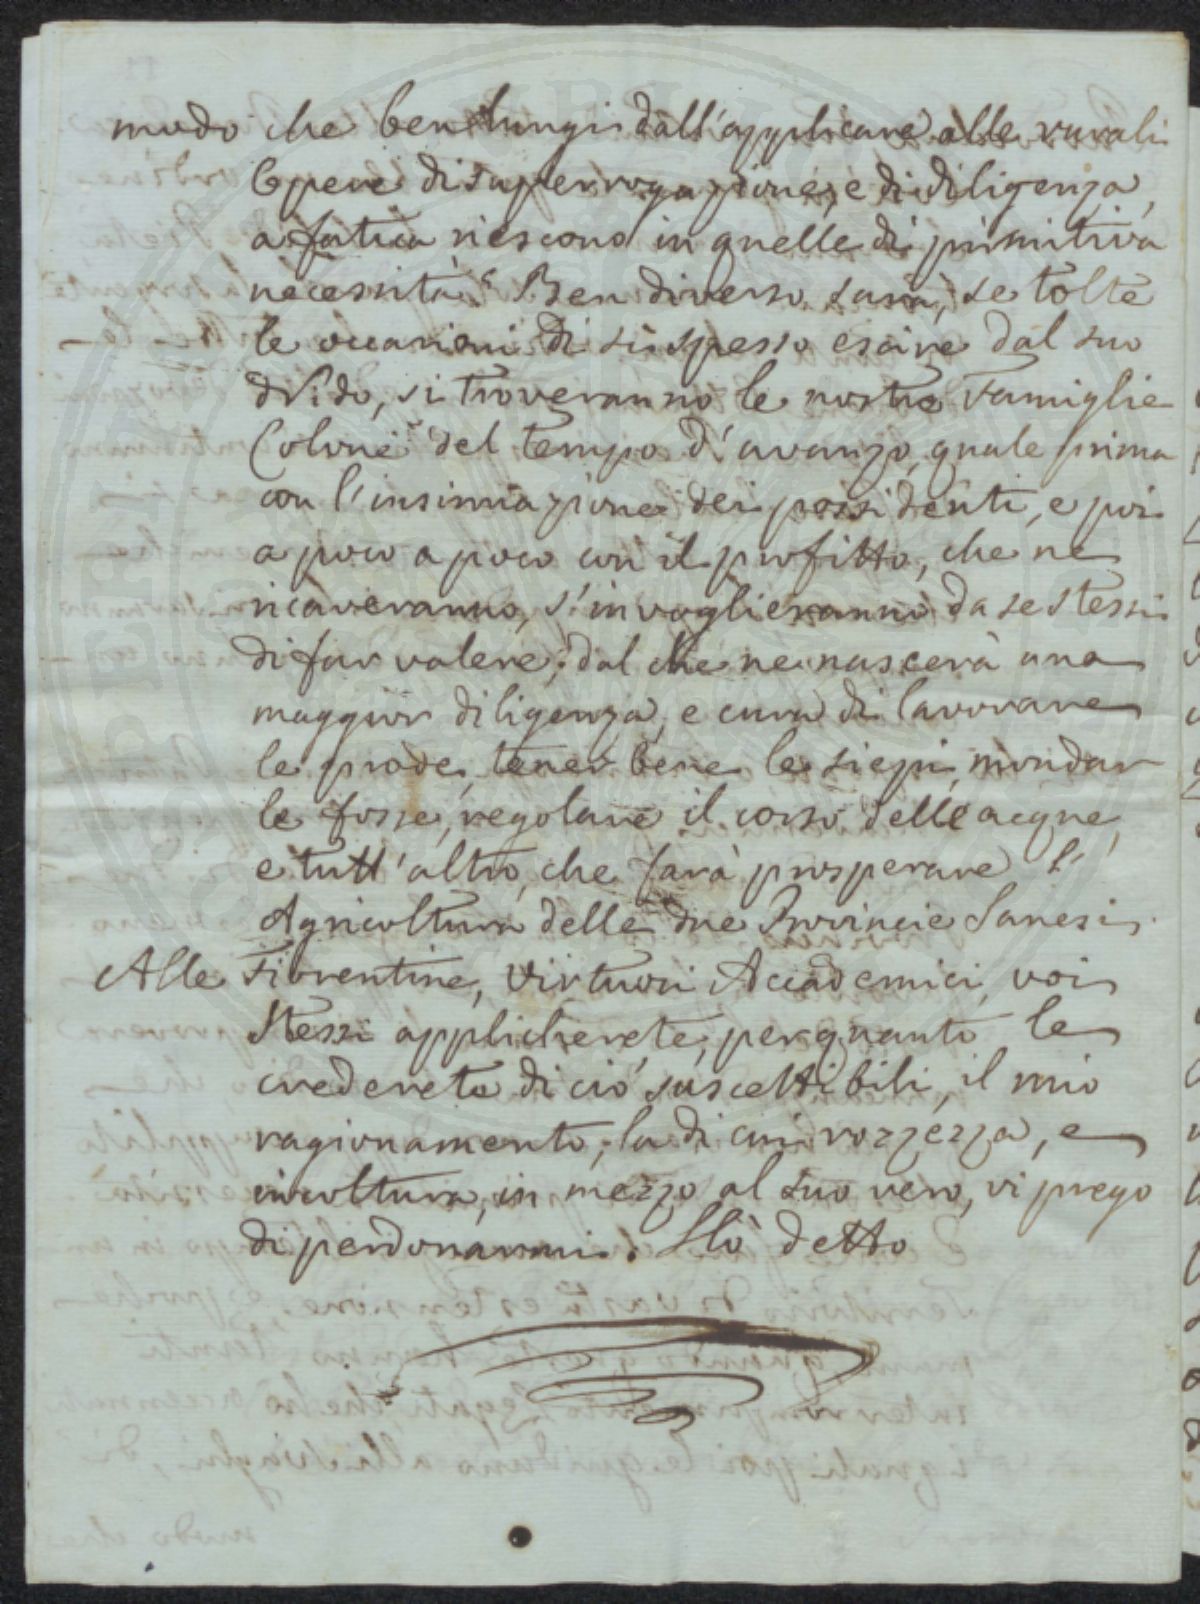 modo che ben lungi dall'applicare alle rurali
Opere di superrogazione, e di diligenza,
a fatica riescono in quelle di primitiva
necessità. Ben diverso sarà, se tolte
le occasioni di sì spesso escire dal suo
Nido, si troveranno le nostre Famiglie
Colone del tempo d'avanzo, quale prima
con l'insinuazione dei possidenti, e poi
a poco a poco con il profitto, che ne
ricaveranno, s'invoglieranno da se stessi
di far valere; dal che ne nascerà una
maggior diligenza, e cura di lavorare
le prode, tener bene le siepi, mondar
le fosse, regolare il corso delle acque,
e tutt'altro, che farà prosperare l'
Agricoltura delle due Provincie Sanesi.
Alle Fiorentine, Virtuosi Accademici, voi
stessi applicherete, per quanto le
crederete di ciò suscettibili, il mio
ragionamento, la di cui rozzezza, e
incoltura, in mezzo al suo vero, vi prego
di perdonarmi. Hò detto